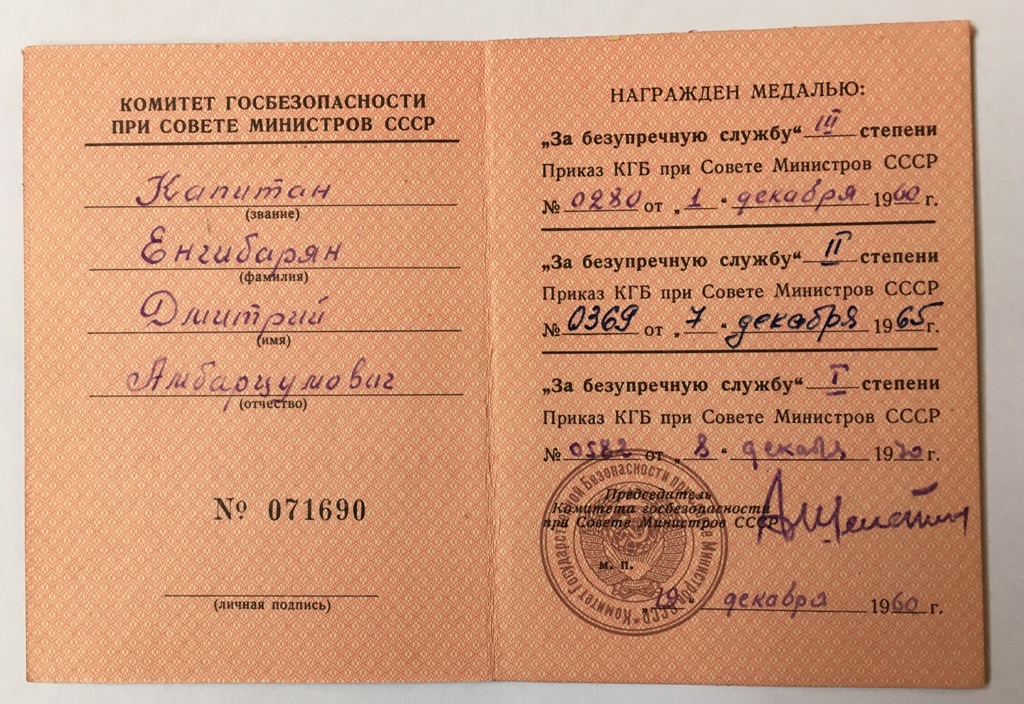 КОМИТЕТ ГОСБЕЗОПАСНОСТИ
ПРИ СОВЕТЕ МИНИСТРОВ СССР
Капитан
(звание)
Енгибарян
(фамилия)
Дмитрий
(имя)
Амбарцумович
(отчество)
№ 071690
(личная подпись)
НАГРАЖДЕН МЕДАЛЬЮ:
„За безупречную службу“ III степени
Приказ КГБ при Совете Министров СССР
№ 0280 от „1“ декабря 1960 г.
„За безупречную службу“ II степени
Приказ КГБ при Совете Министров СССР
№ 0369 от „7“ декабря 1965 г.
„За безупречную службу“ I степени
Приказ КГБ при Совете Министров СССР
№ 0582 от „8“ декабря 1970 г.
Председатель
Комитета госбезопасности
при Совете Министров СССР
А Шелепин
м. п.
Комитет Государственной Безопасности при Совете Министров СССР
„19“ декабря 1960 г.